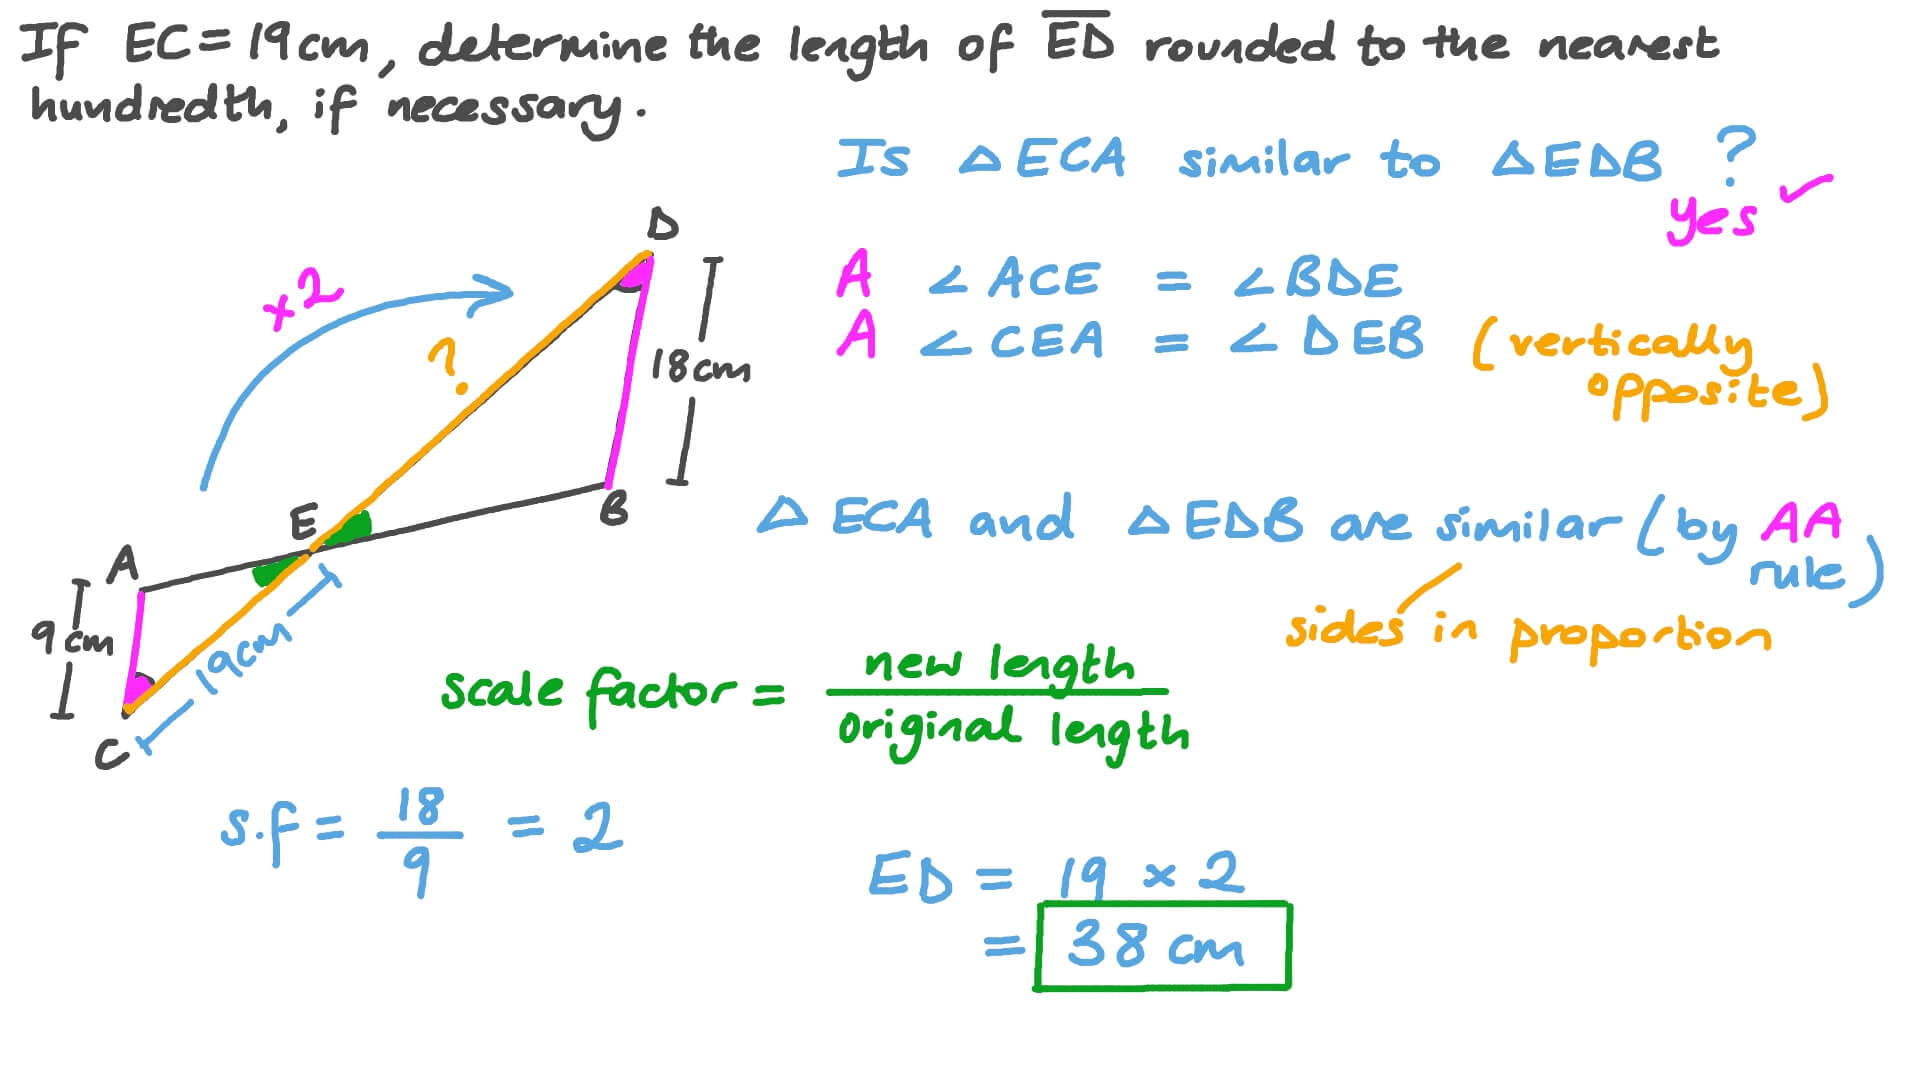 If EC = 19cm, determine the length of E̅D̅ rounded to the nearest
hundredth, if necessary.
Is △ECA similar to △EDB ?
yes ✓
A ∠ACE = ∠BDE
A ∠CEA = ∠DEB (vertically
opposite)
D
×2
?
18cm
E
B
A
9cm
19cm
C
△ECA and △EDB are similar (by AA
rule)
sides in proportion
scale factor = new length
original length
s.f = 18
9
= 2
ED = 19 × 2
= 38 cm